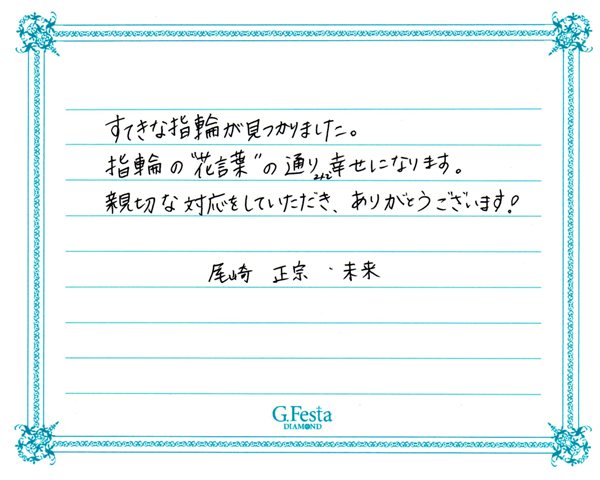 すてきな指輪が見つかりました。
指輪の"花言葉"の通り幸せになります。
親切な対応をしていただき、ありがとうございます!
尾崎 正宗 ・未来
G.Festa
DIAMOND